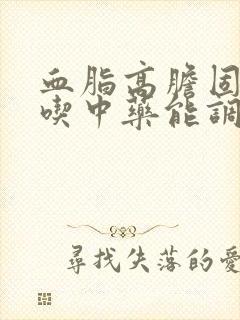 血脂高膽固
喫中藥能調
尋找失落的愛